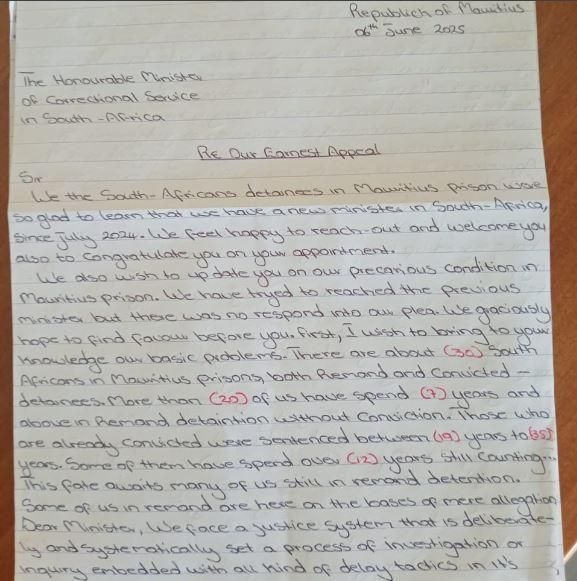 Republich of Mauritius
06th June 2025
The Honourable Minister
Of Correctional Service
in South-Africa
RE Our Earnest Appeal
Sir
We the South-Africans detainees in Mauritius prison were
so glad to learn that we have a new minister in South-Africa,
Since July 2024. We feel happy to reach-out and welcome you
also to congratulate you on your appointment.
We also wish to up date you on our precarious condition in
Mauritius prison. We have tryed to reached the previous
minister but there was no respond into our plea. We graciously
hope to find favour before you. First, I wish to bring to your
knowledge our basic problems. There are about (30) South
Africans in Mauritius prisons, both Remand and Convicted -
detainees. More than (20) of us have spend (7) years and
above in Remand detaintion without Conviction. Those who
are already Convicted were sentenced between (19) years to (35)
years. Some of them have spend over (12) years still Counting...
This fate awaits many of us still in remand detention.
Some of us in remand are here on the bases of mere allegation
Dear Minister, We face a justice system that is deliberate-
ly and systematically set a process of investigation or
inquiry embedded with all kind of delay tactics in it's